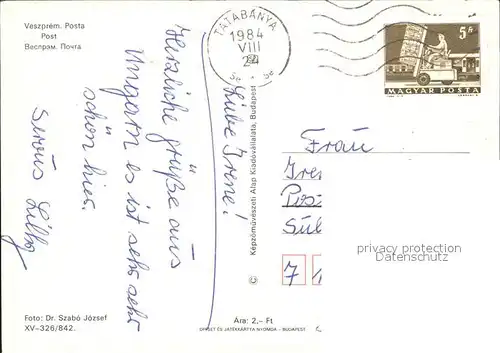 Veszprém. Posta
Post
Веспрэм. Почта
TATABÁNYA
1984
VIII
24
5 Ft
MAGYAR POSTA
Liebe Irene!
Herzliche Grüße aus
Ungarn es ist sehr sehr
schön hier.
Servus Lilly
Képzőművészeti Alap Kiadóvállalata, Budapest
Frau
Ire
Pos
Sü
7
privacy protection
Datenschutz
Foto: Dr. Szabó József
XV–326/842.
Ára: 2.– Ft
OFFSET ÉS JÁTÉKKÁRTYA NYOMDA – BUDAPEST